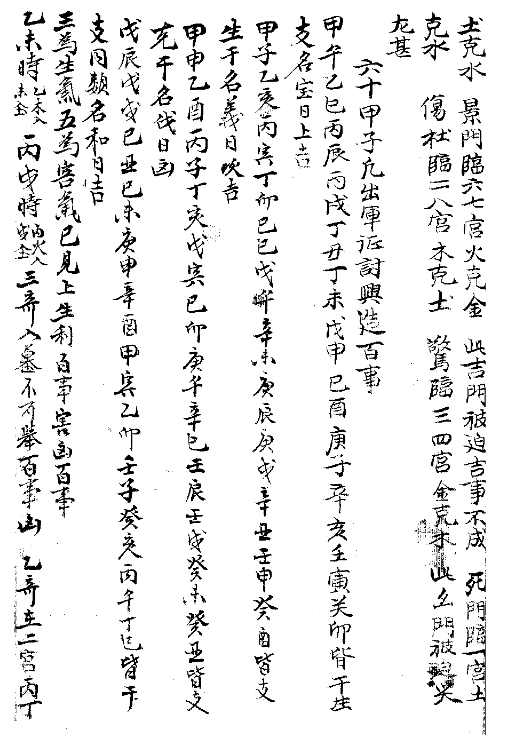 土克水　景門臨六七宫火克金　此吉門被迫吉事不成　死門臨一宫土
克水　傷杜臨二八宫木克土　驚臨三四宫金克木　此凶門被迫災
尤甚
六十甲子凡出軍征討興造百事
甲午乙巳丙辰丙戌丁丑丁未戊申己酉庚子辛亥壬寅癸卯皆干生
支名宝日上吉
甲子乙亥丙寅丁卯己巳戊午辛未庚辰庚戌辛丑壬申癸酉皆支
生干名義日次吉
甲申乙酉丙子丁亥戊寅己卯庚午辛巳壬辰壬戌癸未癸丑皆支
克干名伐日凶
戊辰戊戌己丑己未庚申辛酉甲寅乙卯壬子癸亥丙午丁巳皆干
支同類名和日吉
三為生氣五為害氣已見上生利百事害凶百事
乙未時乙木入未金　丙戌時丙火入戌金　三奇入墓不可舉百事凶　乙奇在二宫丙丁